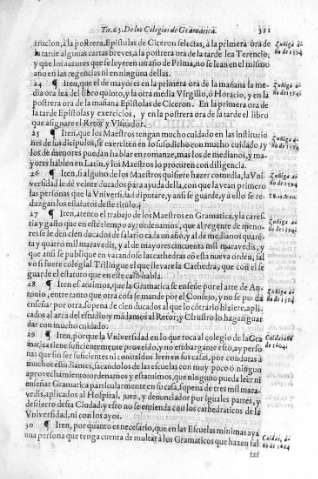 Tit. 65. De los Colegios de Gramatica. 321
trucion, à la postrera, Epistolas de Ciceron selectas, à la primera ora de
la tarde algunas cartas breves, a la postrera de la tarde lea Terencio,
y que los autores que se leyeren un año de Prima, no se lean en el mismo
año en las regencias ni en ninguna dellas.
24 ¶ Iten, q̃ el de mayores en la primera ora de la mañana la me
dia ora lea del libro quinto, y la otra media Virgilio, ò Horacio, y en la
postrera ora de la mañana Epistolas de Ciceron. En la primera ora de
la tarde Epistolas y exercicios, y en la postrera ora de la tarde el libro
que asignare el Retor y Visitador.
25 ¶ Iten, que los Maestros tengan mucho cuidado en las institucio
nes de los dicipulos, se exerciten en lo susodicho con mucho cuidado y
los de menores puedan hablar en romance, mas los de medianos, y ma
yores hablen en Latin, y los Maestros lo procuren con diligencia.
26 ¶ Iten, si alguno de los Maestros quisiere hazer comedia, la Vni
versidad le dè veinte ducados para ayuda della, con que la vean primero
las personas que la Vniversidad diputare, y ansi se guarde, y en ello se re
dungan los estatutos deste titulo.
27 ¶ Iten, atento el trabajo de los Maestros en Gramatica, y la cares
tia y gasto que en este tiempo ay: ordenamos, que al regente de meno-
res se le den cien ducados de salario cada un año, y al de medianos quarẽ
ta y quatro mil maravedis, y al de mayores cincuenta mil maravedis, y
que ansi se publique en vacando las cathedras cõ esta nueva orden, sal
vo si fuere colegial Trilingue el que llevare la Cathedra, que con el se
guarde el estatuto que en este caso habla.
28 ¶ Iten estatuimos, que la Gramatica se enseñe por el arte de An-
tonio, entre tanto que otra cosa se mande por el Consejo, y no se pueda
enseñar por otra, so pena de cien ducados al que lo cõtrario hiziere, apli-
cados al arca del estudio y mãdamos al Retor, y Claustro lo hagan guar
dar con mucho cuidado.
29 ¶ Iten, porque la Vniversidad en lo que toca al colegio de la Gra
matica tiene suficiente
que no son suficientes ni conocidos leen en sus casas, por
muchos estudiantes, sacandolos de las escuelas con muy poco ò ningun
aprovechamiento: ordenamos y estatuimos, que ninguno pueda leer ni
enseñar Gramatica particularmente en su casa, so pena de tres mil mara-
vedis, aplicados al Hospital, juez, y denunciador por iguales partes, y
destierro desta Ciudad, y esto no se entienda con los cathedraticos de la
Vniversidad, ni con los ayos.
30 ¶ Iten, por quanto es necesario, que en las Escuelas minimas aya
una persona que tenga cuenta de multar à los Gramaticos que hazen fal